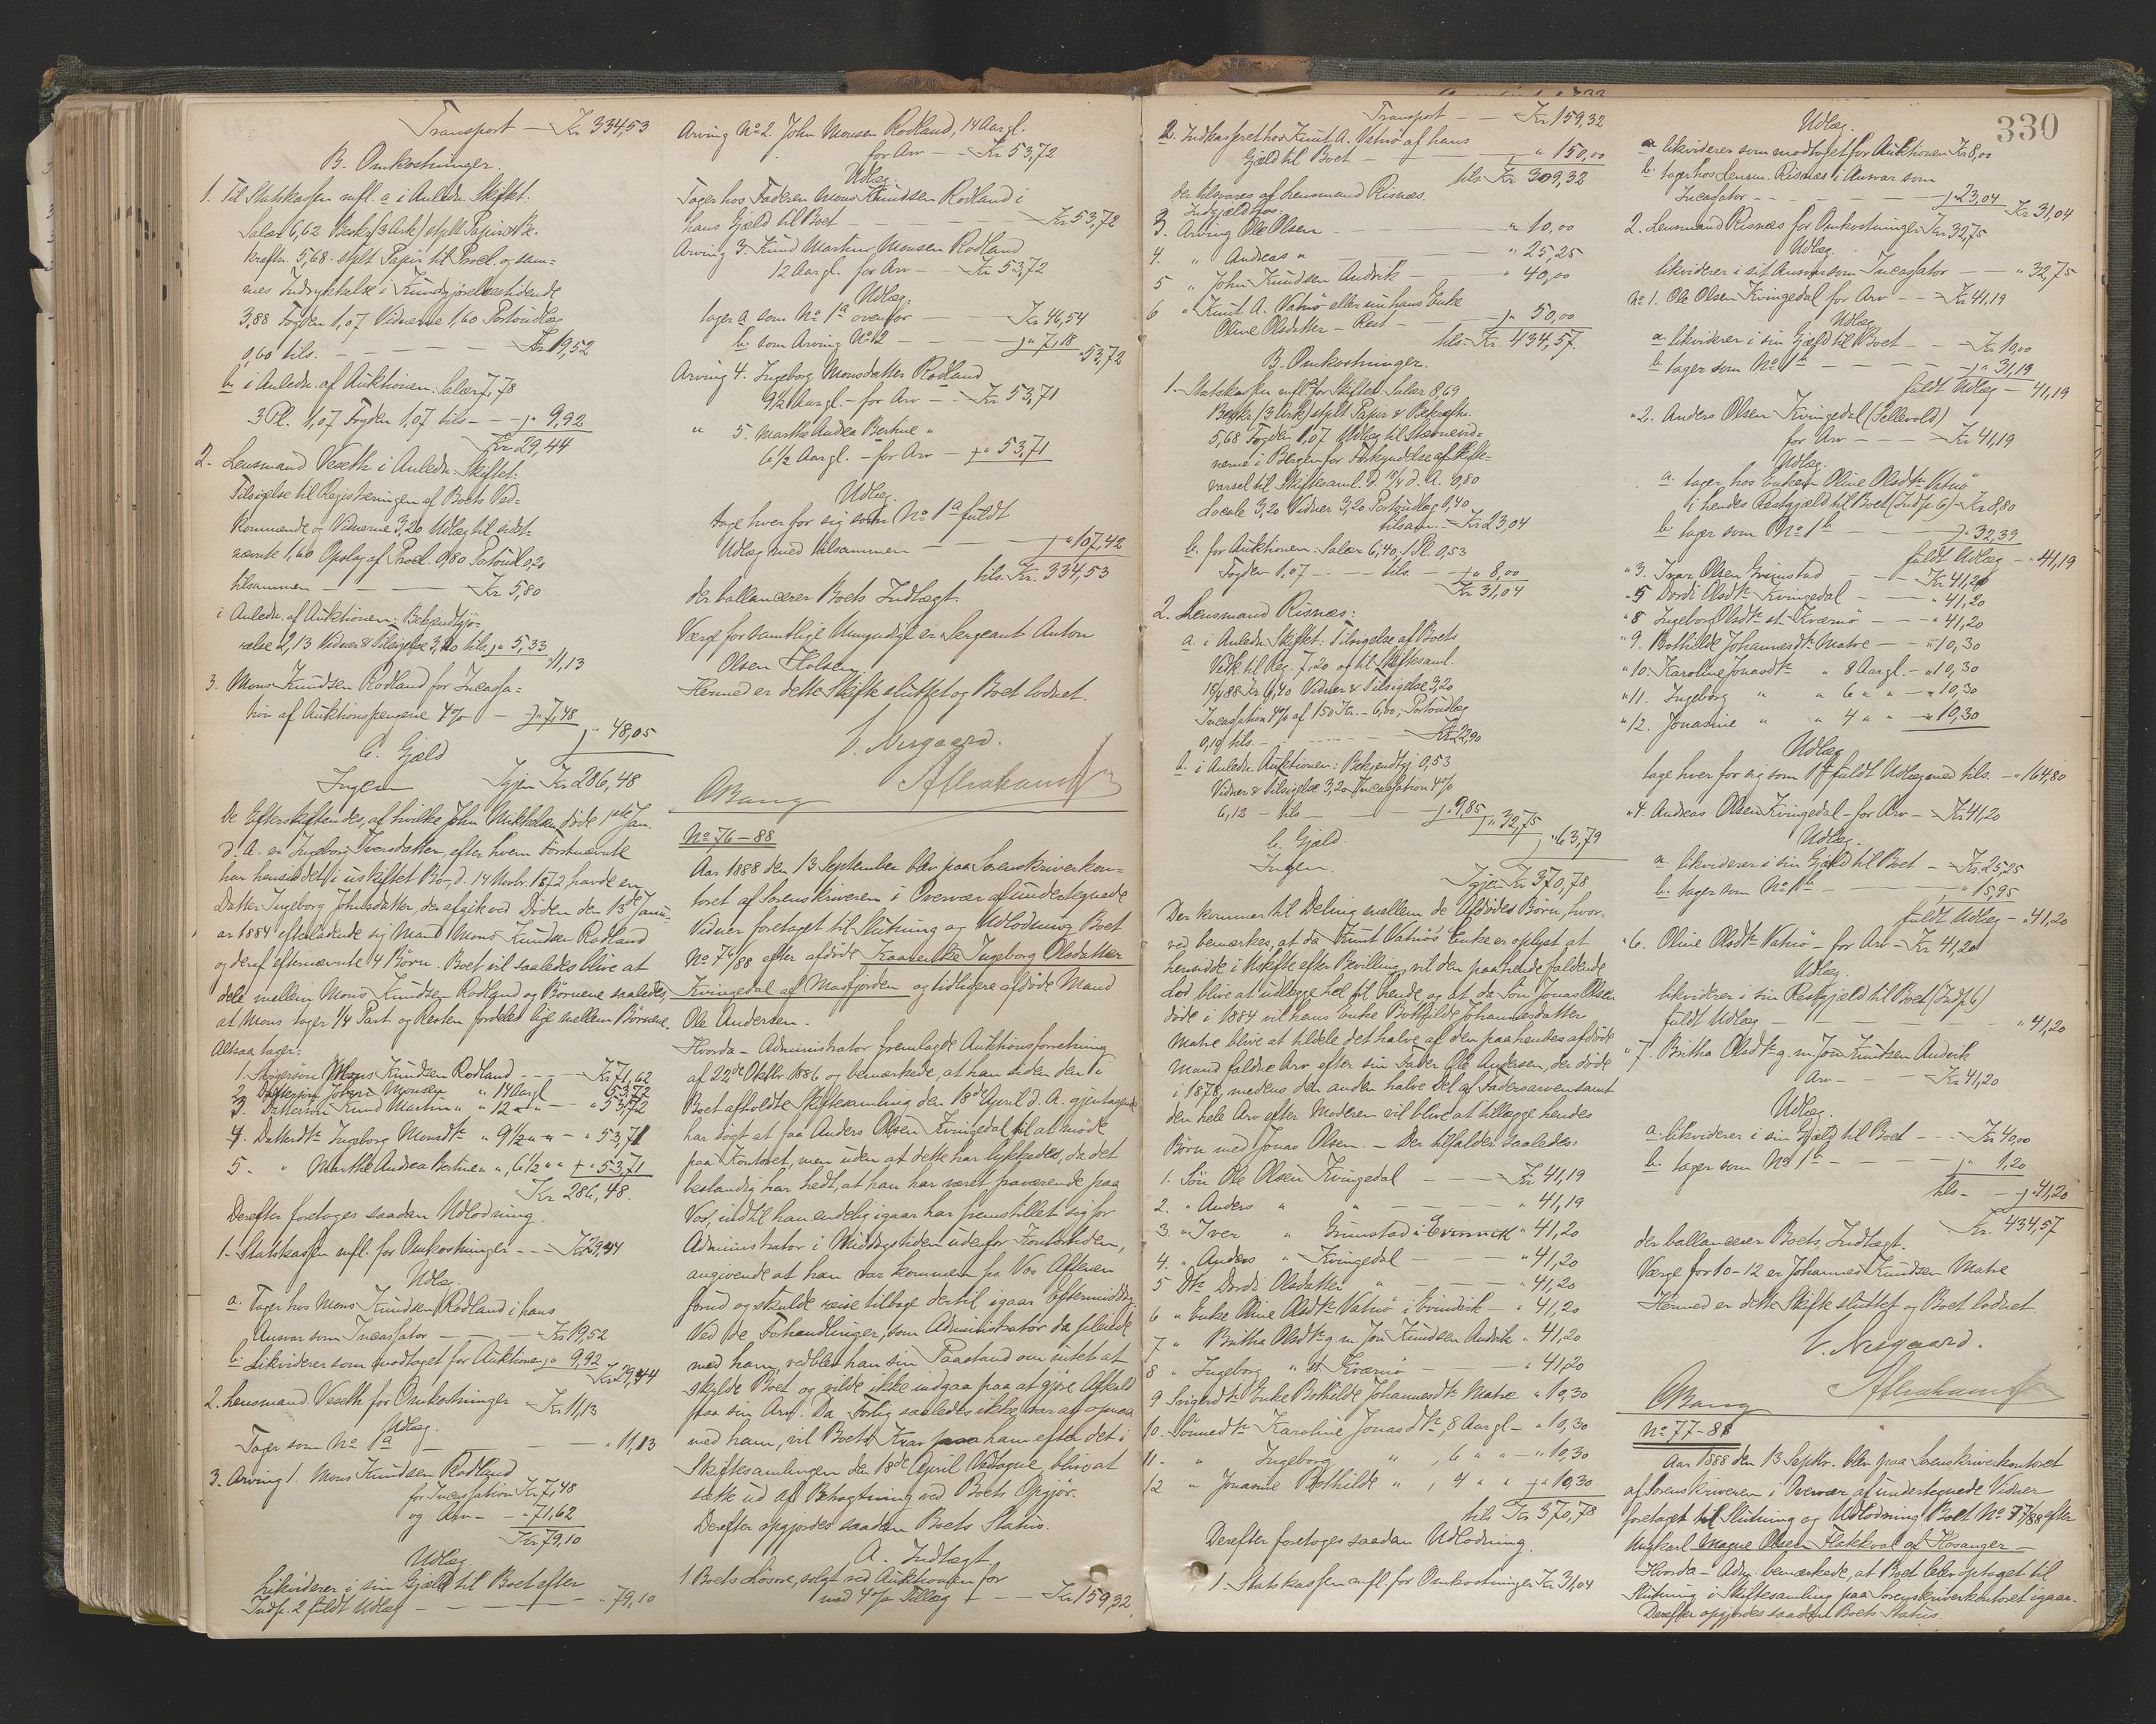 Transport — Kr 334,53
B. Omkostninger.
1. Til Statskassen mfl. a i Anledn. Skiftet:
Salær 6,62 Beskr. (3 Ark) stplt Papir & Be-
kræftn. 5,68 - stplt Papir til Procl. og sam-
mes Indrykkelse i Kundgjörelsestidende
3,88 Fogden 1,07 Vidnerne 1,60 Portoudlæg
0,60 tils. — Kr 19,52
b. i Anledn. af Auktionen: Salær 7,78
3 Pl. 1,07 Fogden 1,07 tils — " 9,92
Kr 29,44
2. Lensmand Veseth i Anledn. Skiftet:
Tilsigelse til Registreringen af Boets Ved-
kommende og Vidnerne 3,20 Udlæg til sidst-
nævnte 1,60 Opslag af Procl. 0,80 Portoudl. 0,20
tilsammen — Kr 5,80
i Anledn. af Auktionen: Bekjendtgjö-
relse 2,13 Vidner & Tilsigelse 3,20 tils. " 5,33
" 11,13
3. Mons Knudsen Rödland for Incassa-
tion af Auktionspengene 4% — " 7,48
" 48,05
C. Gjæld
Ingen Igjen Kr 286,48
De Efterskiftendes, af hvilke John Mikkelsen döde 1ste Jan.
d. A. en Ingeborg Iversdatter, efter hvem Förstnævnte
har hensiddet i uskiftet Bo, d. 14 Novbr. 1872 havde en
Datter Ingeborg Johnsdatter, der afgik ved Döden den 13de Janu-
ar 1884 efterladende sig Mand Mons Knudsen Rödland
og deraf efternævnte 4 Börn. Boet vil saaledes blive at
dele mellem Mons Knudsen Rödland og Börnene saaledes,
at Mons tager 1/4 Part og Resten fordeles lige mellem Börnene.
Altsaa tager:
1. Svigersön Mons Knudsen Rödland — Kr 71,62
2. Dattersön John Monsen " 14 Aargl. " 53,72
3. Dattersön Knud Martin " " 12 " " — " 53,72
4. Datterdtr. Ingeborg Monsdtr. " 9 1/2 " " — " 53,71
5. " Marthe Andrea Bertine " " 6 1/2 " " " 53,71
Kr 286,48.
Derefter foretoges saadan Udlodning.
1. Statskassen mfl. for Omkostninger — Kr 29,44
Udlæg.
a. Tager hos Mons Knudsen Rödland i hans
Ansvar som Incassator — Kr 19,52
b. Likviderer som modtaget for Auktionen " 9,92
Kr 29,44
2. Lensmand Veseth for Omkostninger Kr 11,13
Udlæg.
Tager som No 1a — " 11,13
3. Arving 1. Mons Knudsen Rödland
for Incassation Kr 7,48
og Arv — " 71,62
Kr 79,10
Udlæg.
Likviderer i sin Gjæld til Boet efter
Indp. 2 fuldt Udlæg — " 79,10
Arving No 2. John Monsen Rödland, 14 Aargl.
for Arv — Kr 53,72
Udlæg.
Tager hos Faderen Mons Knudsen Rödland i
hans Gjæld til Boet — Kr 53,72
Arving 3. Knud Martin Monsen Rödland
12 Aargl. for Arv — Kr 53,72
Udlæg.
tager a som No 1a ovenfor — Kr 46,54
b. som Arving No 2 — " 7,18
" 53,72
Arving 4. Ingeborg Monsdatter Rödland
9 1/2 Aargl. — for Arv — Kr 53,71
" 5. Marthe Andrea Bertine "
6 1/2 Aargl. — for Arv — " 53,71
Udlæg.
tage hver for sig som No 1a fuldt
Udlæg med tilsammen — " 107,42
tils. Kr. 334,53
der ballancerer Boets Indtægt.
Værge for samtlige Umyndige er Sergeant Anton
Olsen Holsen
Hermed er dette Skifte sluttet og Boet lodnet.
V. Nesgaard.
CBang
No 76-88
Aar 1888 den 13 September blev paa Sorenskriverkon-
toret af Sorenskriveren i Overvær af undertegnede
Vidner foretaget til Slutning og Udlodning Boet
No 76/88 efter afdöde Kaarenke Ingeborg Olsdatter
Kvingedal af Masfjorden og tidligere afdöde Mand
Ole Andersen.
Hvorda — Administrator fremlagde Auktionsforretning
af 22de Oktbr. 1886 og bemærkede, at han siden den i
Boet afholdte Skiftesamling den 18de April d. A. gjentagende
har sögt at faa Anders Olsen Kvingedal til at möde
paa Kontoret, men uden at dette har lykkedes, da det
bestandig har hedt, at han har været fraværende paa
Vos, indtil han endelig igaar har fremstillet sig for
Administrator i Middagstiden udenfor Kontortiden,
angivende at han var kommen fra Vos Aftenen
forud og skulde reise tilbage dertil igaar Eftermiddag.
Ved de Forhandlinger, som Administrator da pleiede
med ham, vedblev han sin Paastand om intet at
skylde Boet og vilde ikke indgaa paa at gjöre Afkald
paa sin Arv. Da Forlig saaledes ikke var at opnaa
med ham, vil Boets Krav paa ham efter det i
Skiftesamlingen den 18de April Vedtagne blive at
sætte ud af Betragtning ved Boets Opgjör.
Derefter opgjordes saadan Boets Status.
A. Indtægt.
1 Boets Lösöre, solgt ved Auktionen for
med 4% Tillæg — Kr 159,32
330
Transport — Kr 159,32
2. Indkasseret hos Knut A. Vatnö af hans
Gjæld til Boet — " 150,00
tils. Kr 309,32
der tilsvares af Lensmand Risnæs.
Indgjæld hos:
3. Arving Ole Olsen — " 10,00
4. " Andreas " — " 25,25
5 " John Knudsen Andvik — " 40,00
6 " Knut A. Vatnö eller nu hans Enke
Oline Olsdatter — Rest — " 50,00
tils. Kr. 434,57.
B. Omkostninger.
1. Statskassen mfl. a for Skiftet: Salær 8,69
Beskr. (3 Ark) stplt Papir & Bekræftn.
5,68 Fogden 1,07 Udlæg til Stævnevid-
nerne i Bergen for Forkyndelse af Skifte-
varsel til Skiftesaml. d. 18/4 d. A. 0,80
Locale 3,20 Vidner 3,20 Portoudlæg 0,40
tilsam. — Kr 23,04
b. for Auktionen: Salær 6,40, 1 Pl. 0,53
Fogden 1,07 — tils. — " 8,00
Kr 31,04
2. Lensmand Risnæs:
a. i Anledn. Skiftet: Tilsigelse af Boets
Vedk. til Reg. 7,20 og til Skiftesaml.
18/4 88 Kr 6,40 Vidner & Tilsigelse 3,20
Incassation 4% af 150 Kr. — 6,00, Portoudlæg
0,10 tils. — Kr 22,90
b. i Anledn. Auktionen: Bekjendtgj. 0,53
Vidner & Tilsigelse 3,20 Incassation 4%
6,12 — tils — " 9,85
" 32,75
" 63,79
C. Gjæld.
Ingen. Igjen Kr 370,78
Der kommer til Deling mellem de Afdödes Börn, hvor-
ved bemærkes, at da Knut Vatnö's Enke er oplyst at
hensidde i Uskifte efter Bevilling, vil den paa hende faldende
Lod blive at udlægge hel til hende og at da Sön Jonas Olsen
döde i 1884 vil hans Enke Bothilde Johannesdatter
Matre blive at tildele det halve af den paa hendes afdöde
Mand faldne Arv efter sin Fader Ole Andersen, der döde
i 1878, medens den anden halve Del af Fadersarven samt
den hele Arv efter Moderen vil blive at tillægge hendes
Börn med Jonas Olsen. — Der tilfalder saaledes:
1. Sön Ole Olsen Kvingedal — Kr 41,19
2. " Anders " " — " 41,19
3. " Iver " Grimstad i " 41,20
4. " Anders " Kvingedal — " 41,20
5 Dtr. Dordi Olsdatter " — " 41,20
6 " Enke Oline Olsdtr. Vatnö i Evindvik — " 41,20
7 " Britha Olsdtr. g. m. Jon Knudsen Andvik " 41,20
8 " Ingeborg " st. Kværnö — " 41,20
9 Svigerdtr. Enke Bothilde Johannesdtr. Matre " 10,30
10. Sönnedtr. Karoline Jonasdtr. 8 Aargl — " 10,30
11. " Ingeborg " , 6 " " — " 10,30
12 " Jonasine Bothilde " , 4 " " " 10,30
tils Kr 370,78
Derefter foretoges saadan Udlodning.
1. Statskassen mfl. for Omkostninger Kr 31,04
Udlæg.
a likviderer som modtaget for Auktionen Kr 8,00
b. tager hos Lensm. Risnæs i Ansvar som
Incassator — " 23,04
Kr 31,04
2. Lensmand Risnæs for Omkostninger Kr 32,75
Udlæg.
likviderer i sit Ansvar som Incassator — " 32,75
No 1. Ole Olsen Kvingedal for Arv — Kr 41,19
Udlæg.
a. likviderer i sin Gjæld til Boet — Kr 10,00
b. tager som No 1b — " 31,19
fuldt Udlæg — 41,19
" 2. Anders Olsen Kvingedal (Sellevold)
for Arv — Kr 41,19
Udlæg.
a. tager hos Enken Oline Olsdtr. Vatnö
i hendes Restgjæld til Boet (Indp. 6) — Kr 8,80
b. tager som No 1b — " 32,39
fuldt Udlæg — " 41,19
" 3. Ivar Olsen Grimstad — Kr 41,20
" 5 Dordi Olsdtr. Kvingedal — " 41,20
" 8 Ingeborg Olsdtr. st. Kværnö — " 41,20
" 9. Bothilde Johannesdtr. Matre — " 10,30
" 10. Karoline Jonasdtr. " 8 Aargl — " 10,30
" 11. Ingeborg " " 6 " " — " 10,30
" 12. Jonasine " " 4 " " — " 10,30
Udlæg
tage hver for sig som 1b fuldt Udlæg med tils. — " 164,80
" 4. Andreas Olsen Kvingedal — for Arv — Kr 41,20
Udlæg.
a. likviderer i sin Gjæld til Boet — Kr. 25,25
b. tager som No 1b — " 15,95
fuldt Udlæg — " 41,20
" 6. Oline Olsdtr. Vatnö — for Arv — Kr 41,20
Udlæg.
likviderer i sin Restgjæld til Boet (Indp. 6)
fuldt Udlæg — " 41,20
" 7. Britha Olsdtr. g. m. Jon Knudsen Andvik
Arv — Kr 41,20
Udlæg.
a. likviderer i sin Gjæld til Boet — Kr 40,00
b. tager som No 1b — " 1,20
tils — " 41,20
Kr. 434,57
der ballancerer Boets Indtægt.
Værge for 10-12 er Johannes Knudsen Matre
Hermed er dette Skifte sluttet og Boet lodnet.
V. Nesgaard.
CBang
No 77-88
Aar 1888 den 13 Septbr. blev paa Sorenskriverkontoret
af Sorenskriveren i Overvær af undertegnede Vidner
foretaget til Slutning og Udlodning Boet No 77/88 efter
Ungkarl Magne Olsen Flakkvol af Hosanger —
Hvorda — Adm. bemærkede, at Boet blev optaget til
Slutning i Skiftesamling paa Sorenskriverkontoret igaar.
Derefter opgjordes saadan Boets Status.